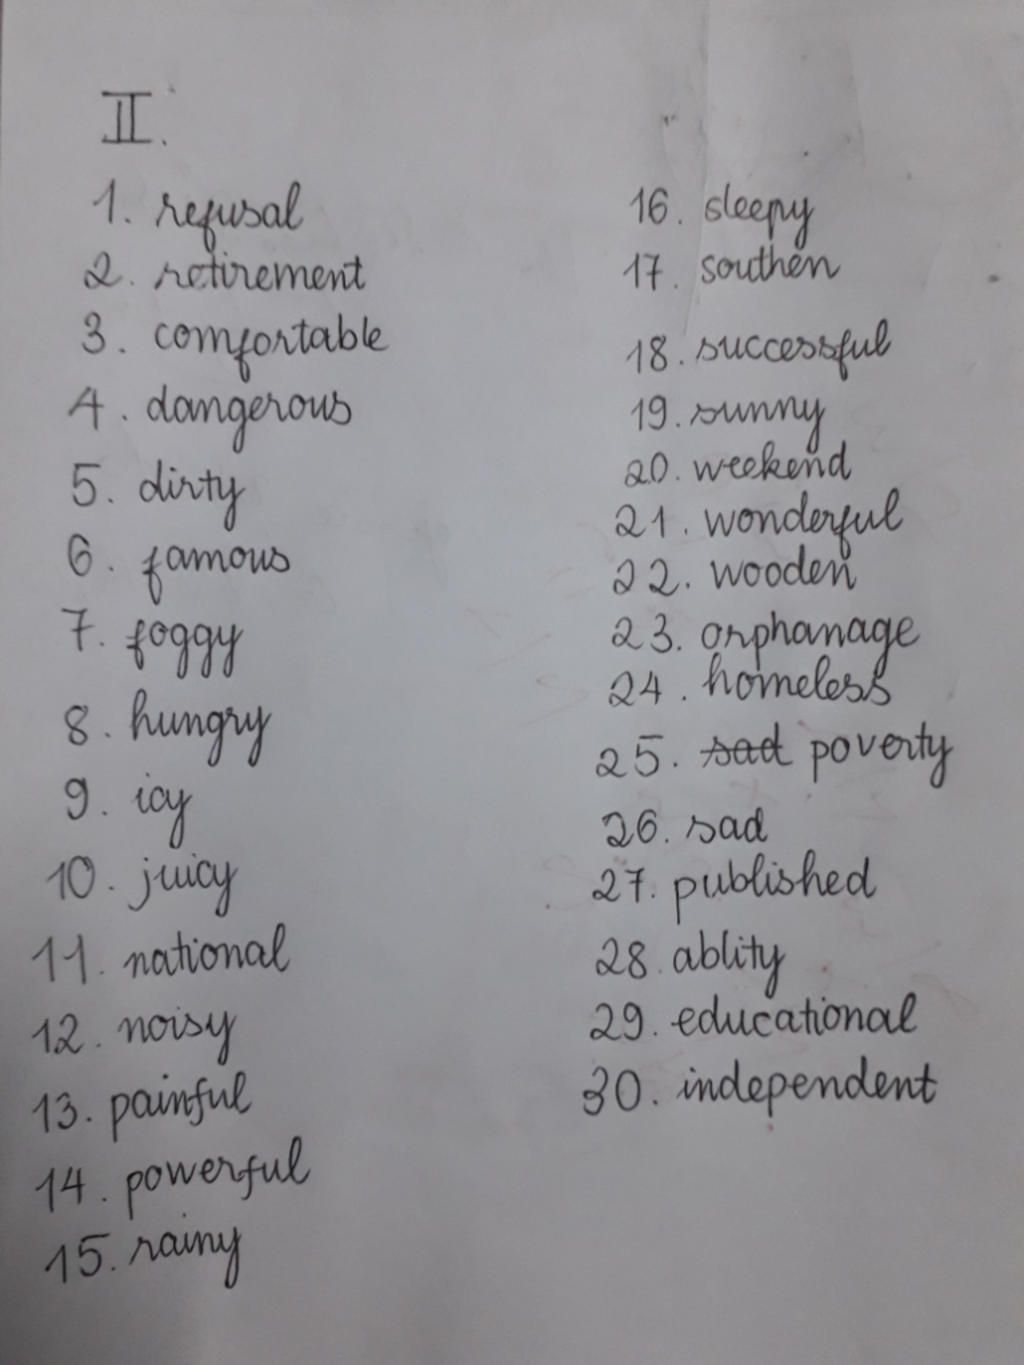 II.
1. refusal
2. retirement
3. comfortable
4. dangerous
5. dirty
6. famous
7. foggy
8. hungry
9. icy
10. juicy
11. national
12. noisy
13. painful
14. powerful
15. rainy
16. sleepy
17. southen
18. successful
19. sunny
20. weekend
21. wonderful
22. wooden
23. orphanage
24. homeless
25. sad poverty
26. sad
27. published
28. ablity
29. educational
30. independent